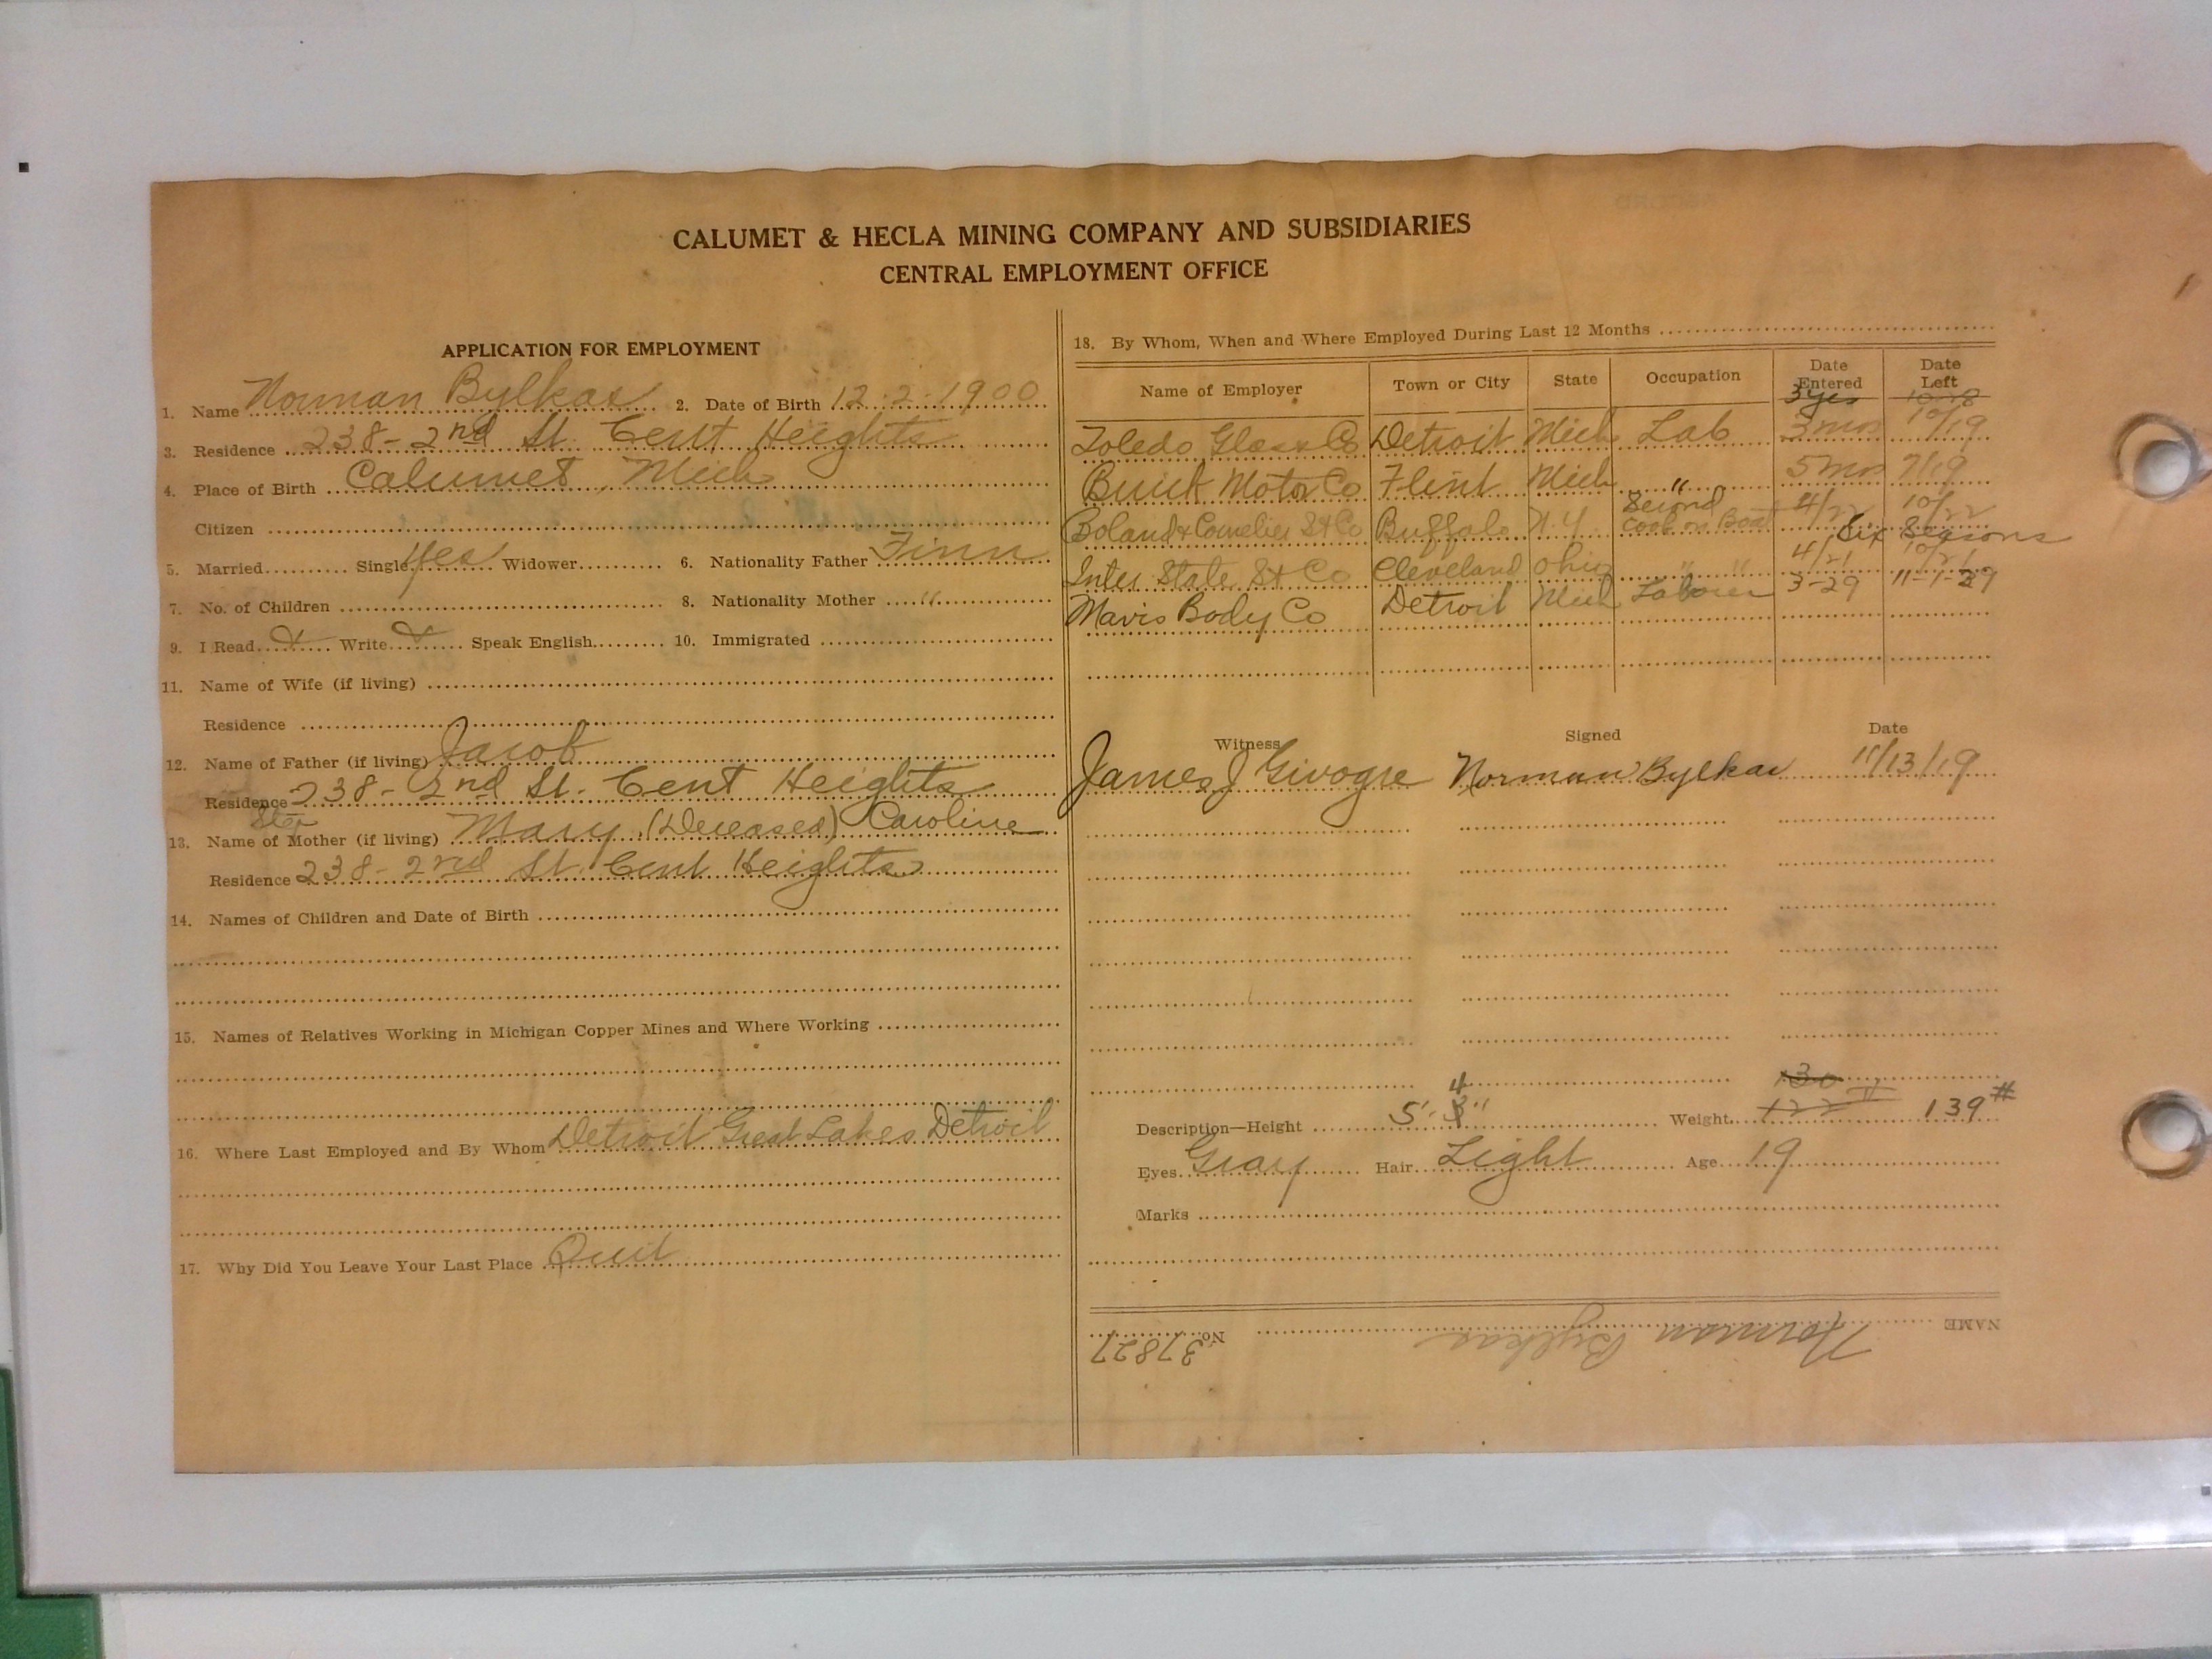 CALUMET & HECLA MINING COMPANY AND SUBSIDIARIES
CENTRAL EMPLOYMENT OFFICE
APPLICATION FOR EMPLOYMENT
1. Name Norman Bylkas 2. Date of Birth 12-2-1900
3. Residence 238-2nd St. Cent Heights
4. Place of Birth Calumet, Mich
Citizen
5. Married Single Yes Widower 6. Nationality Father Finn
7. No. of Children 8. Nationality Mother "
9. I Read Write Speak English 10. Immigrated
11. Name of Wife (if living)
Residence
12. Name of Father (if living) Jacob
Residence 238-2nd St. Cent Heights
Step
13. Name of Mother (if living) Mary (Deceased) Caroline
Residence 238-2nd St. Cent Heights
14. Names of Children and Date of Birth
15. Names of Relatives Working in Michigan Copper Mines and Where Working
16. Where Last Employed and By Whom Detroit Great Lakes Detroit
17. Why Did You Leave Your Last Place Quit
18. By Whom, When and Where Employed During Last 12 Months
Name of Employer Town or City State Occupation Date Entered Date Left
3 yrs
Toledo Glass Co Detroit Mich Lab 3 mos 10/19
Buick Motor Co Flint Mich " 5 mos 7/19
Boland & Cornelius St Co Buffalo N.Y. Second Cook on Boat 4/22 10/22
Six Seasons
Inter State St Co Cleveland Ohio " " 4/21 10/21
Mavis Body Co Detroit Mich Laborer 3-29 11-1-29
Witness Signed Date
James J Givogre Norman Bylkas 11/13/19
4 130
Description—Height 5'-3" Weight 122 139#
Eyes Gray Hair Light Age 19
Marks
NAME Norman Bylkas No. 37827